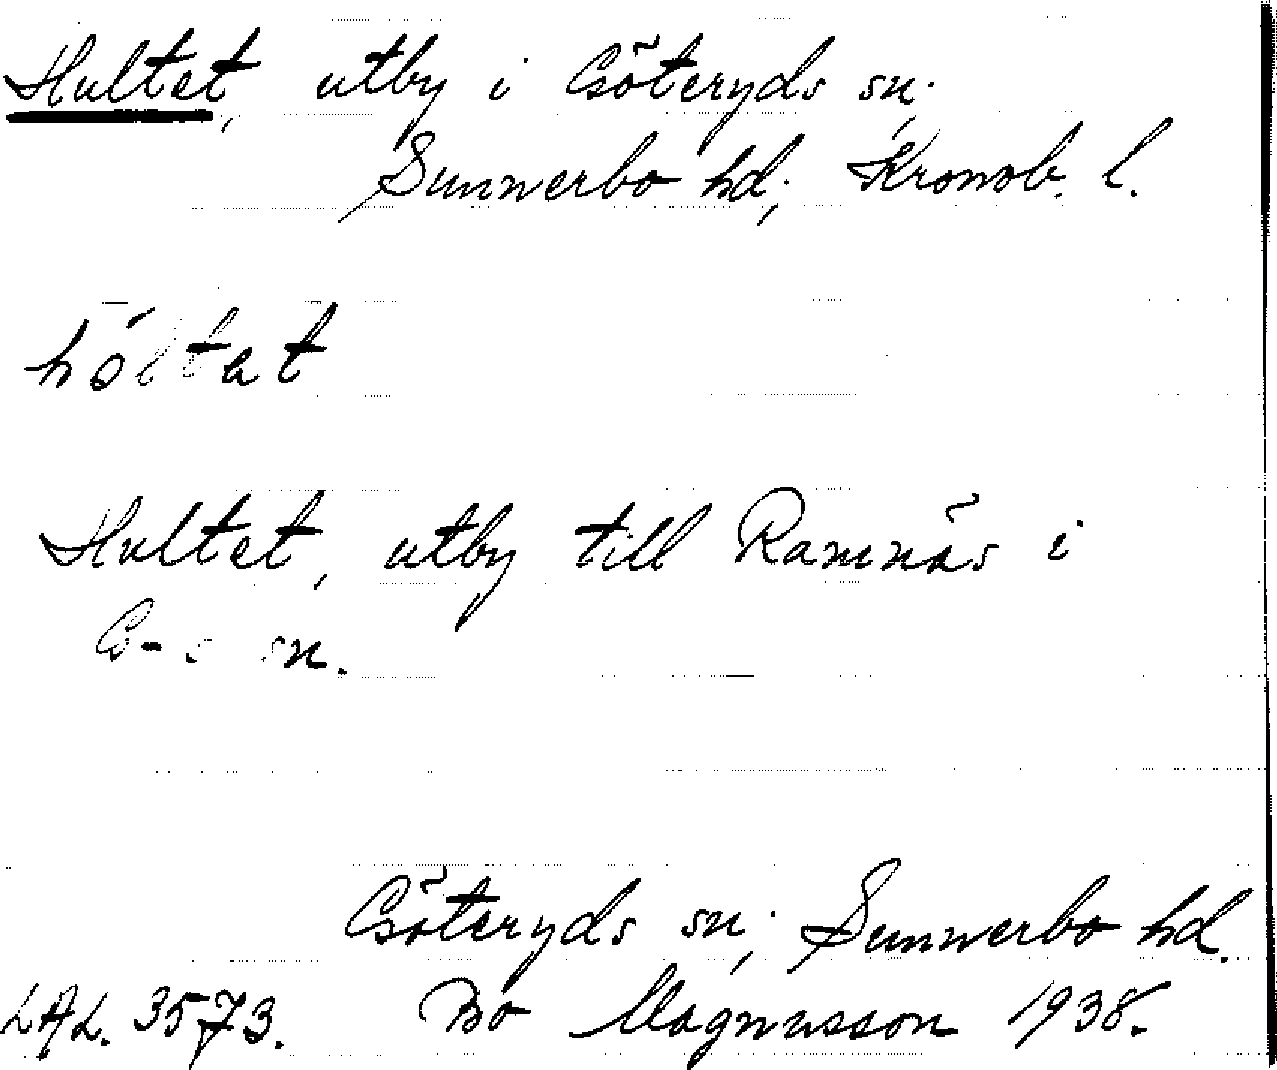 Hultet, utby i Göteryds sn.,
Sunnerbo hd., Kronob. l.
hóltat
Hultet, utby till Ramnäs i
G-s sn.
Göteryds sn., Sunnerbo hd.
LAL. 3573. Bo Magnusson 1938.